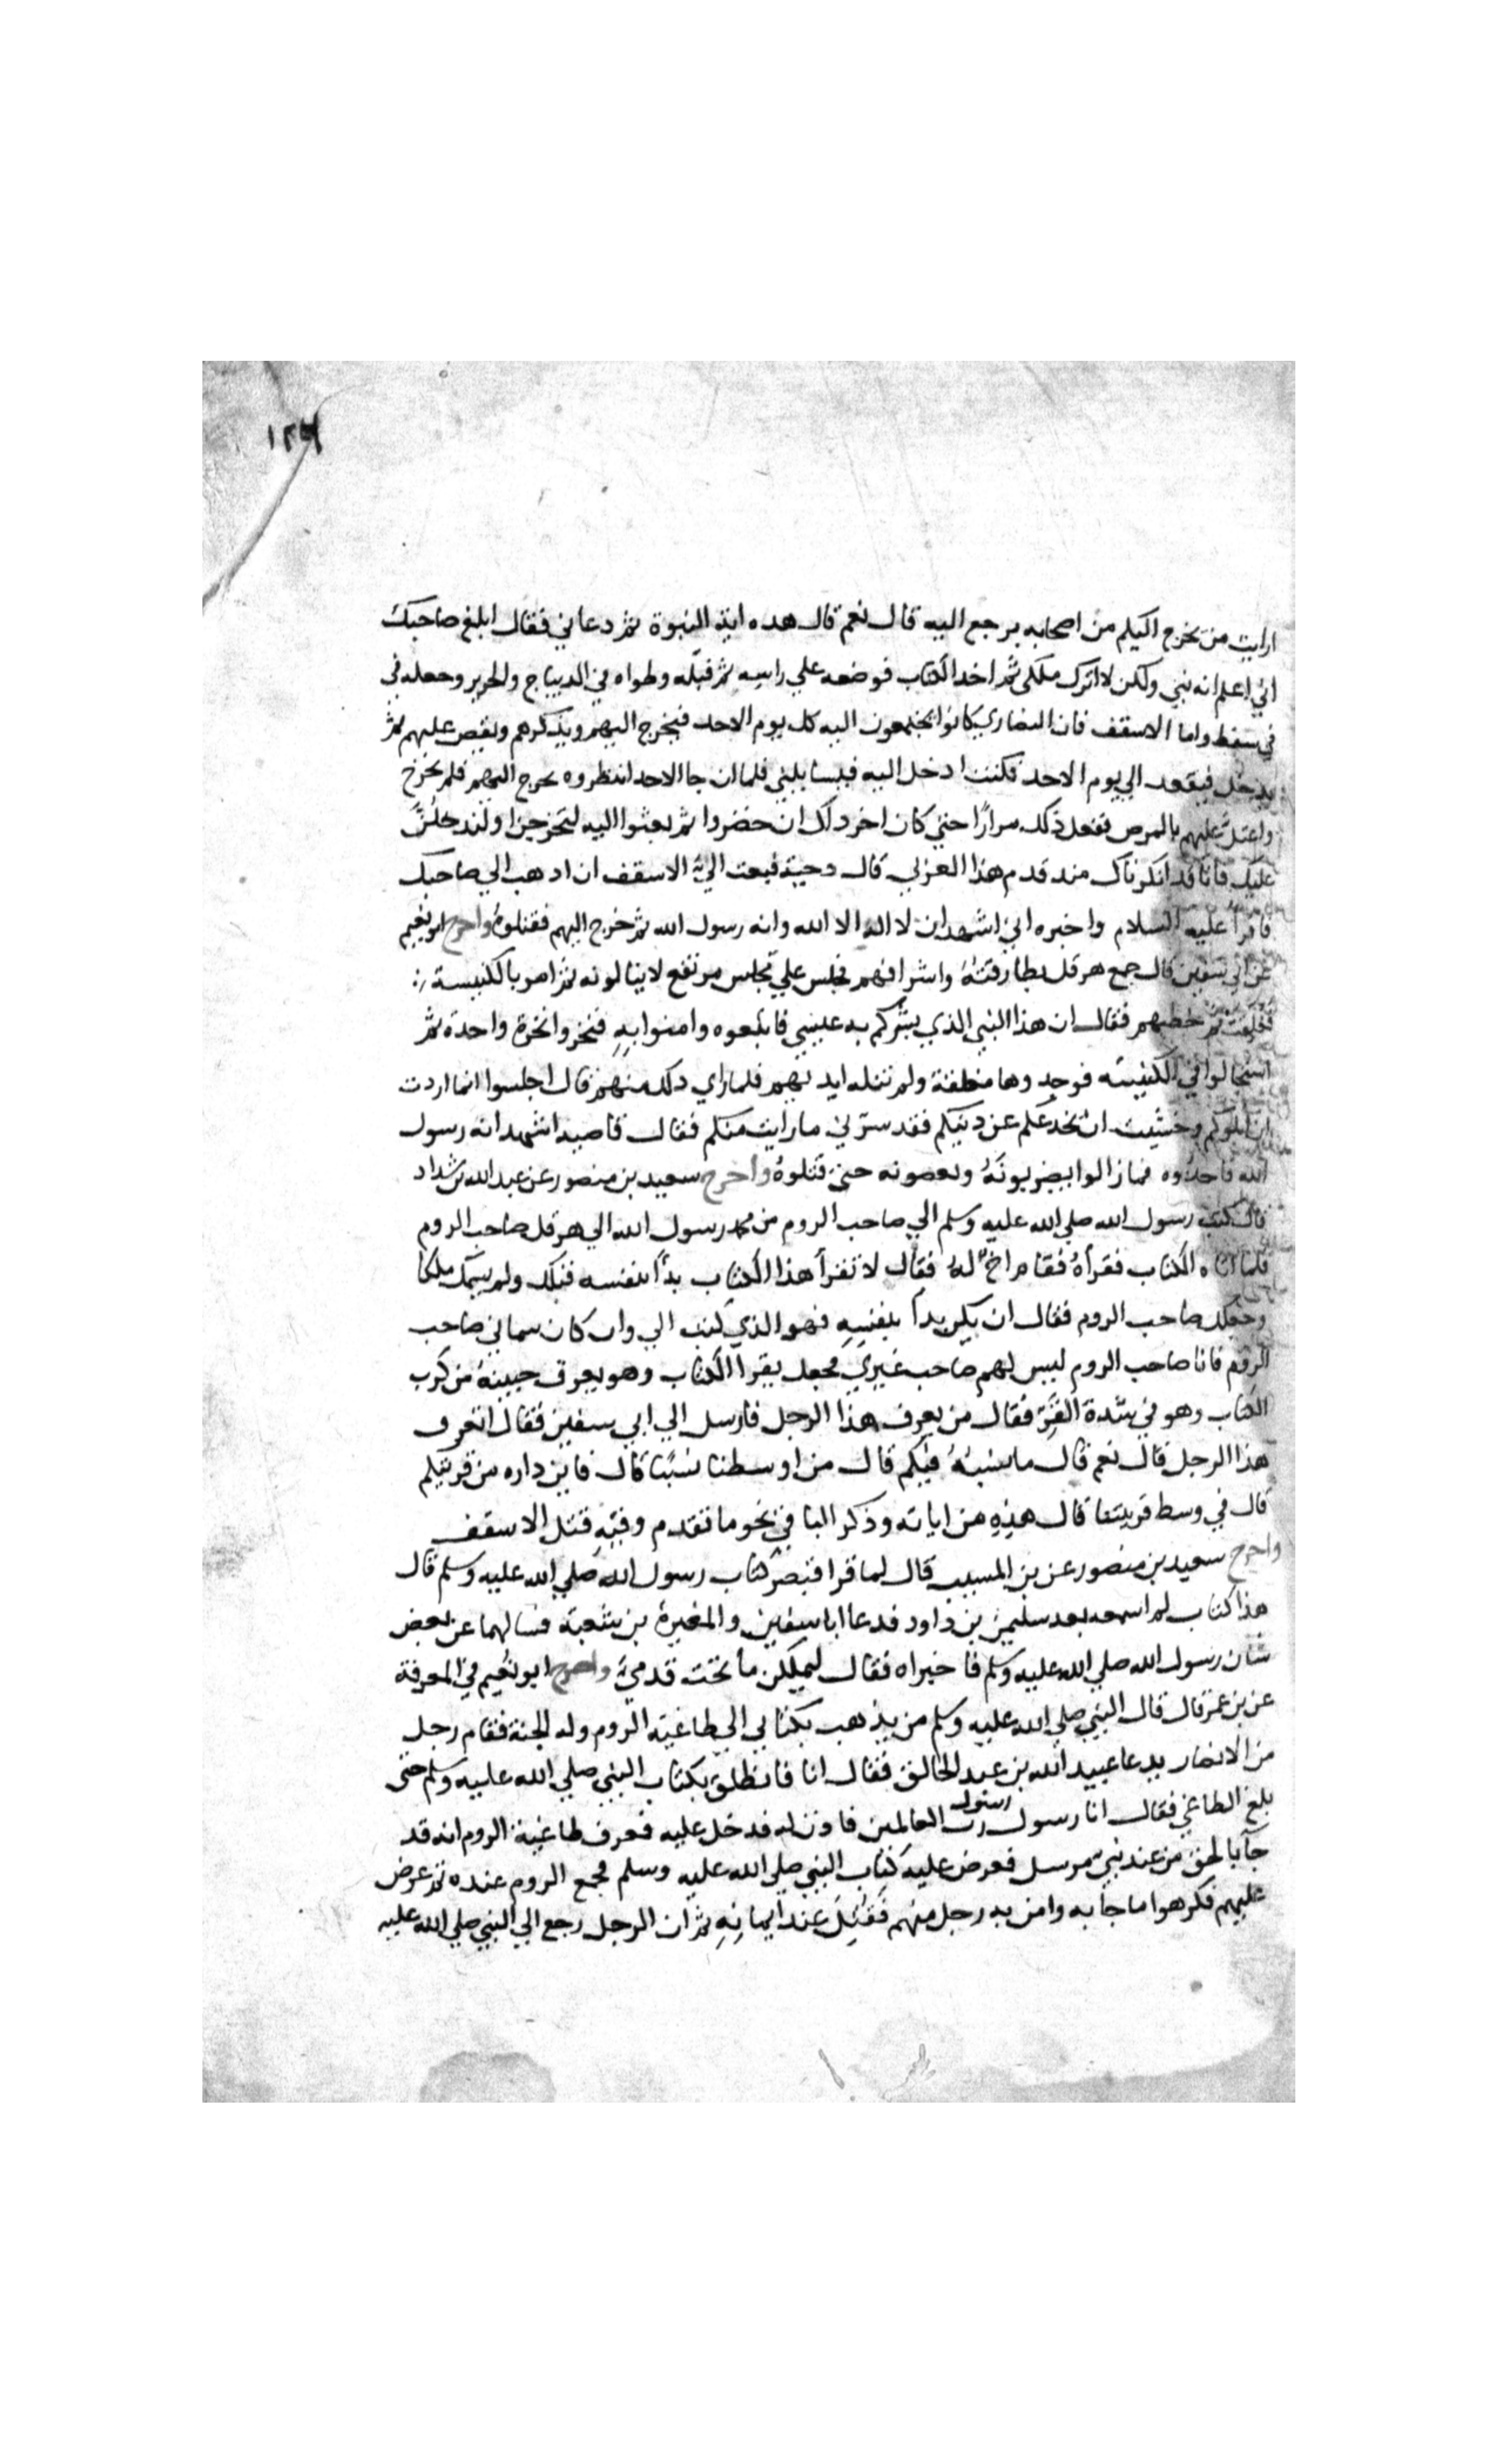 ١٢٦
ارايت من خرج اليكم من اصحابه يرجع اليه قال نعم قال هده اية النبوة ثم دعاني فقال ابلغ صاحبك
اني اعلم انه نبي ولكن لا اترك ملكي ثم اخد الكتاب فوضعه علي راسه ثم قبله وطواه في الديباج والحرير وجعله في
في سفط واما الاسقف فان النصاري كانوا يجتمعون اليه كل يوم الاحد فيخرج اليهم ويذكرهم ويقص عليهم ثم
يدخل فيقعد الي يوم الاحد فكنت ادخل اليه فيسايلني فلما ان جا الاحد انتظروه يخرج اليهم فلم يخرج
واعتل عليهم بالمرض ففعل ذلك مرارًا حتي كان اخر دلك ان حضروا ثم بعثوا اليه لتخرجن او لندخلن
عليك فانا قد انكرناك مند قدم هذا العربي قال دحية فبعث اليّ الاسقف ان ادهب الي صاحبك
فاقرأ عليه السلام واخبره اني اشهد ان لا اله الا الله وانه رسول الله ثم خرج اليهم فقتلوهُ واخرج ابو نعيم
عن ابي سفين قال جمع هرقل بطارقتهُ واشرافهم فجلس علي مجلس مرتفع لا ينالونه ثم امر بالكنيسة
فغلقت ثم خطبهم فقال ان هذا النبي الذي بشركم به عيسي فاتبعوه وامنوا بهِ فنخروا نخرة واحدة ثم
استجالوا في الكنيسه فوجدوها مغلقة ولم تنله ايديهم فلما راي دلك منهم قال اجلسوا انما اردت
ان ابلوكم وخشيت ان تخدعكم عن دينكم فقد سرّني ما رايت منكم فقال قاصيد اشهد انه رسول
الله فاخدوه فما زالوا يضربونهُ ويعضونه حتي قتلوهُ واخرج سعيد بن منصور عن عبد الله بن شداد
قال كتب رسول الله صلي الله عليه وسلم الي صاحب الروم من محمد رسول الله الي هرقل صاحب الروم
فلما اتاه الكتاب فقرأهُ فقام اخٌ لهُ فقال لا تقرأ هذا الكتاب بدأ بنفسه قبلك ولم يسمك ملكا
وجعلك صاحب الروم فقال ان يكن بدأ بنفسِهِ فهو الذي كتب الي وان كان سماني صاحب
الروم فانا صاحب الروم ليس لهم صاحب غيري فجعل يقرا الكتاب وهو يعرق جبينهُ من كرب
الكتاب وهو في شدة القرّ فقال من يعرف هذا الرجل فارسل الي ابي سفين فقال اتعرف
هذا الرجل قال نعم قال ما نسبهُ فيكم قال من اوسطنا نسبًا قال فاين داره من قريتكم
قال في وسط قريتنا قال هذهِ من اياته وذكر الباقي نحو ما تقدم وفيهِ قتل الاسقف
واخرج سعيد بن منصور عن بن المسيب قال لما قرا قيصر كتاب رسول الله صلي الله عليه وسلم قال
هذا كتاب لم اسمعه بعد سليمن بن داود فدعا ابا سفين والمغيرة بن شعبة فسالهما عن بعض
شان رسول الله صلي الله عليه وسلم فاخبراه فقال ليملكن ما تحت قدميّ واخرج ابو نعيم في المعرفة
عن بن عمر قال قال النبي صلي الله عليه وسلم من يذهب بكتابي الي طاغية الروم وله الجنة فقام رجل
من الانصار يدعا عبيد الله بن عبد الخالق فقال انا فانطلق بكتاب النبي صلي الله عليه وسلم حتى
بلغ الطاغي فقال انا رسول رسول رب العالمين فاذن له فدخل عليه فعرف طاغية الروم انه قد
جآ بالحق من عند نبي مرسل فعرض عليه كتاب النبي صلي الله عليه وسلم فجمع الروم عنده ثم عرض
عليهم فكرهوا ما جآ به وامن به رجل منهم فَقُتِلَ عند ايمانِهِ ثم ان الرجل رجع الي النبي صلي الله عليه